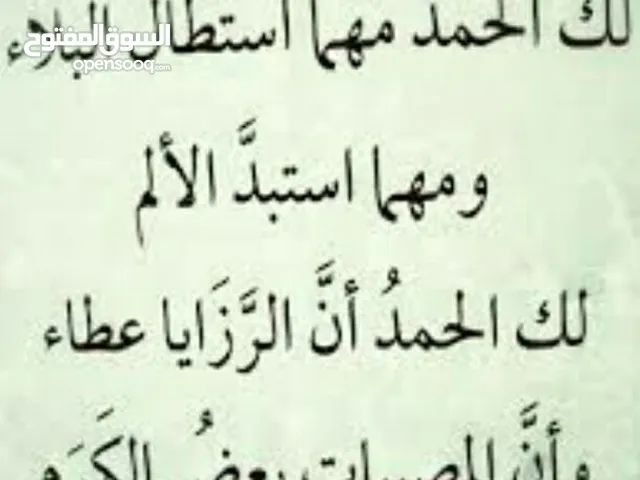 لك الحمد مهما استطال البلاء
السوق المفتوح
opensooq.com
ومهما استبدَّ الألم
لك الحمدُ أنَّ الرَّزَايا عطاء
وأنَّ المصيبات بعضُ الكَرَم